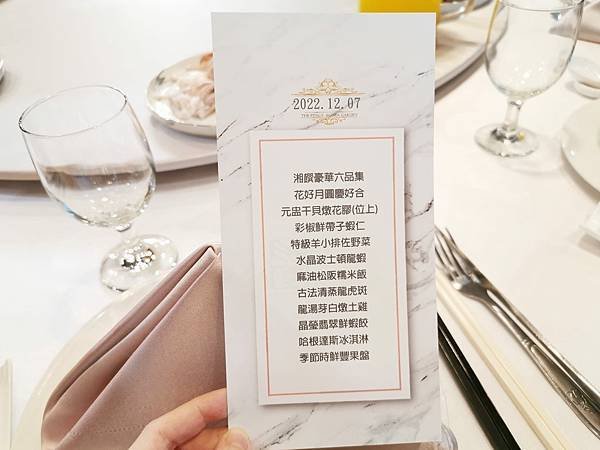 2022.12.07
湘饌豪華六品集
花好月圓慶好合
元盅干貝燉花膠(位上)
彩椒鮮帶子蝦仁
特級羊小排佐野菜
水晶波士頓龍蝦
麻油松阪糯米飯
古法清蒸龍虎斑
龍湯芽白燉土雞
晶瑩翡翠鮮蝦餃
哈根達斯冰淇淋
季節時鮮豐果盤